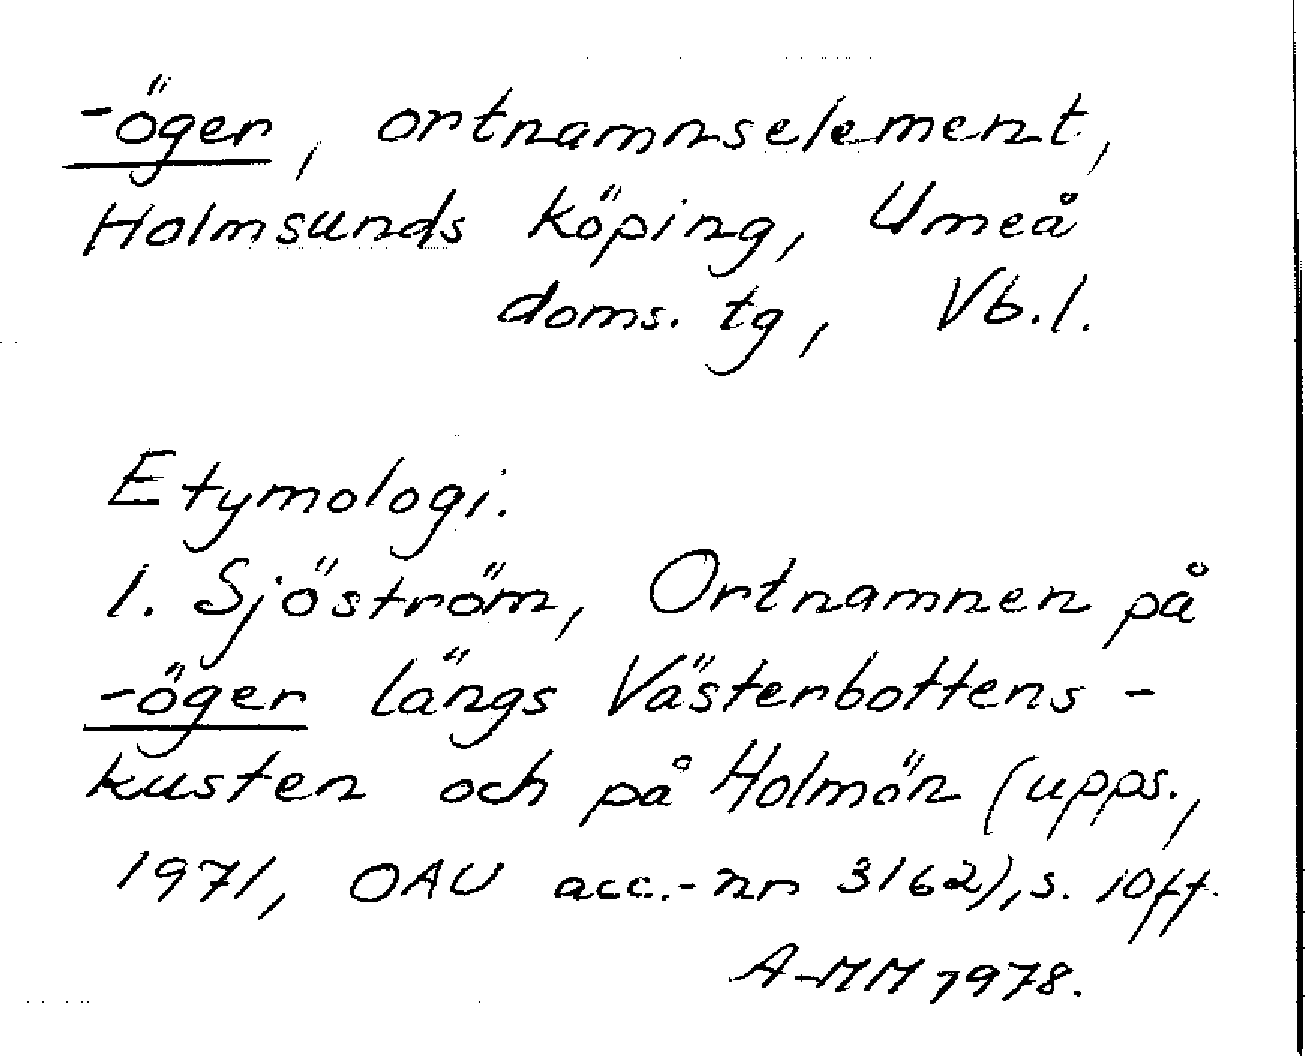 -öger, ortnamnselement,
Holmsunds köping, Umeå
doms. tg, Vb.l.
Etymologi.
1. Sjöström, Ortnamnen på
-öger längs Västerbottens-
kusten och på Holmön (upps.,
1971, OAU acc.-nr 3162), s. 10ff.
A-MM 1978.